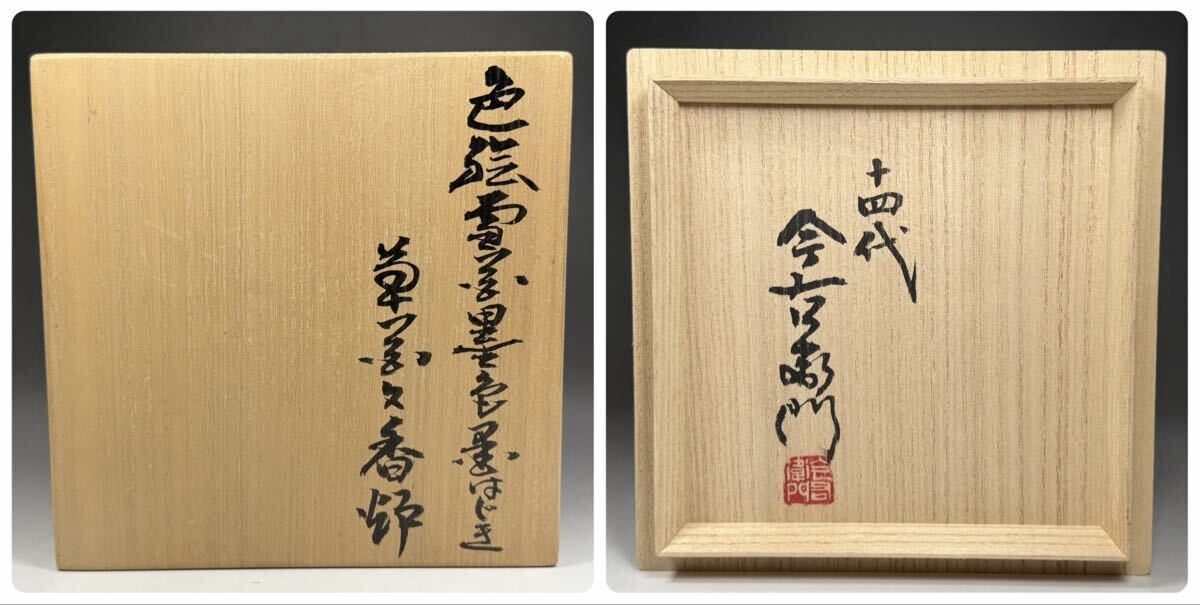 色絵雪花墨色墨はじき
草花文香炉
十四代
今右衛門
今右衛門